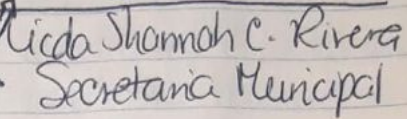 Licda Shannah C. Rivera
Secretaria Municipal